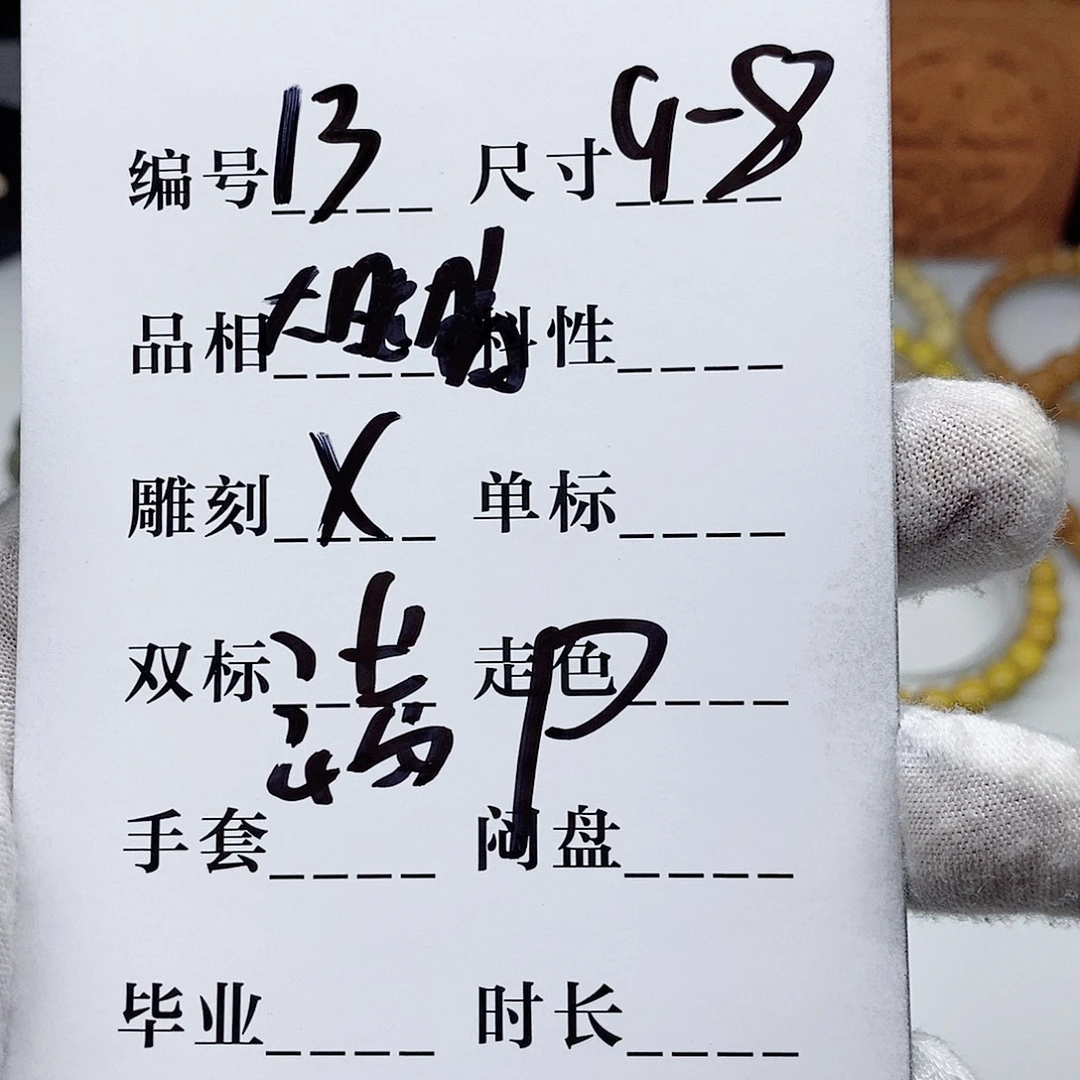 编号13 尺寸9-8
品相____ 料性____
雕刻X 单标____
双标____ 走色____
手套____ 闷盘____
毕业____ 时长____